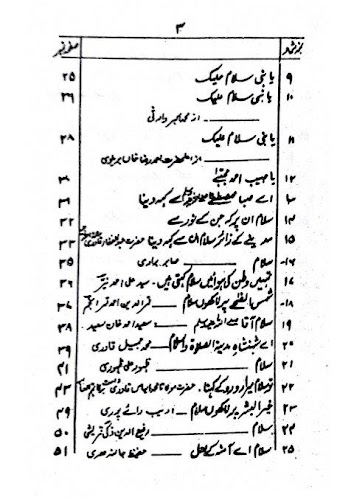 ۳
نمبر شمار صفحہ نمبر
۹ یا نبی سلام علیک ۲۵
۱۰ یا نبی سلام علیک ۲۶
از محمد اکبر وارثی
۱۱ یا نبی سلام علیک ۲۸
از اعلیٰحضرت احمد رضا خاں بریلوی
۱۲ یا حبیب احمد مجتبیٰ ۳۰
۱۳ اے صبا مصطفیٰ سے کہہ دینا ۳۱
۱۴ سلام ان پر کہ جن کے نور سے ۳۲
۱۵ مدینے کے زائر سلام ان سے کہہ دینا ۳۳
۱۶ سلام صابر بہاری ۳۵
۱۷ تمہیں وطن کی ہوائیں سلام کہتی ہیں۔ سید علی احمد ۳۶
۱۸ شمس الضحیٰ پر لاکھوں سلام قمر الدین احمد قمر انجم ۳۷
۱۹ سلام آقا سعید احمد خان سعید ۳۸
۲۰ اے شہنشاہ مدینہ الصلوٰۃ والسلام محمد جمیل قادری ۳۹
۲۱ سلام ظہور علی ظہوری ۴۱
۲۲ تو سلام میرا رو رو کے کہنا۔ حضرت مولانا محمد الیاس قادری ۴۳
۲۳ خیر البشر پر لاکھوں سلام ادیب رائے پوری ۴۹
۲۴ سلام رفیع الدین ذکی قریشی ۵۰
۲۵ سلام اے آمنہ کے لعل حفیظ جالندھری ۵۱